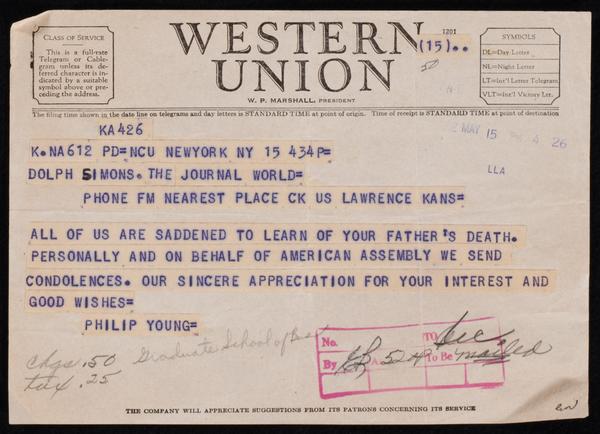 CLASS OF SERVICE
This is a full-rate
Telegram or Cable-
gram unless its de-
ferred character is in-
dicated by a suitable
symbol above or pre-
ceding the address.
WESTERN
UNION
W. P. MARSHALL, PRESIDENT
1201
(15)..
SYMBOLS
DL=Day Letter
NL=Night Letter
LT=Int'l Letter Telegram
VLT=Int'l Victory Ltr.
The filing time shown in the date line on telegrams and day letters is STANDARD TIME at point of origin. Time of receipt is STANDARD TIME at point of destination
KA426
MAY 15 4 26
K.NA612 PD=NCU NEWYORK NY 15 434P=
DOLPH SIMONS.THE JOURNAL WORLD=
LLA
PHONE FM NEAREST PLACE CK US LAWRENCE KANS=
ALL OF US ARE SADDENED TO LEARN OF YOUR FATHER'S DEATH.
PERSONALLY AND ON BEHALF OF AMERICAN ASSEMBLY WE SEND
CONDOLENCES. OUR SINCERE APPRECIATION FOR YOUR INTEREST AND
GOOD WISHES=
PHILIP YOUNG=
Graduate School of Bus
chgs .50
tax .25
No. TO
By 524 To Be mailed
THE COMPANY WILL APPRECIATE SUGGESTIONS FROM ITS PATRONS CONCERNING ITS SERVICE